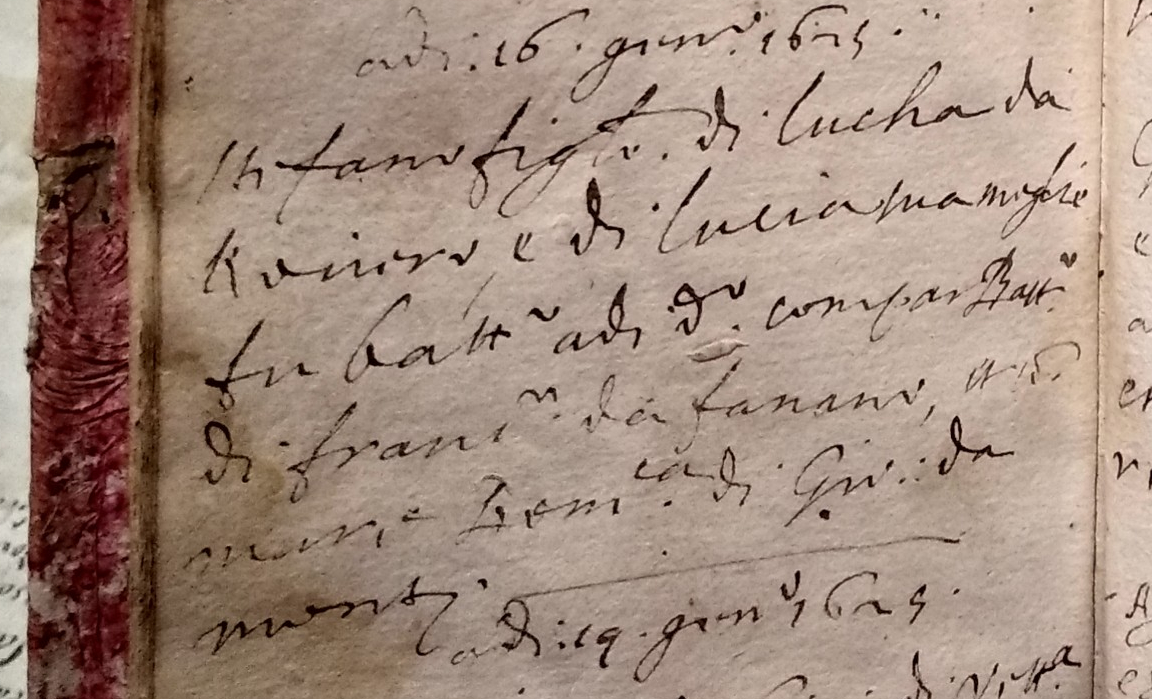 adi: 16. gen.o 1625.
Stefano figl.o di Lucha da
Roncro, e di Lucia sua moglie
fu batt.o adi d.o compar Batt.o
di Franc.o da fanano, et
mare Dom.ca di Gio: da
monti
adi: 19. gen.o 1625.